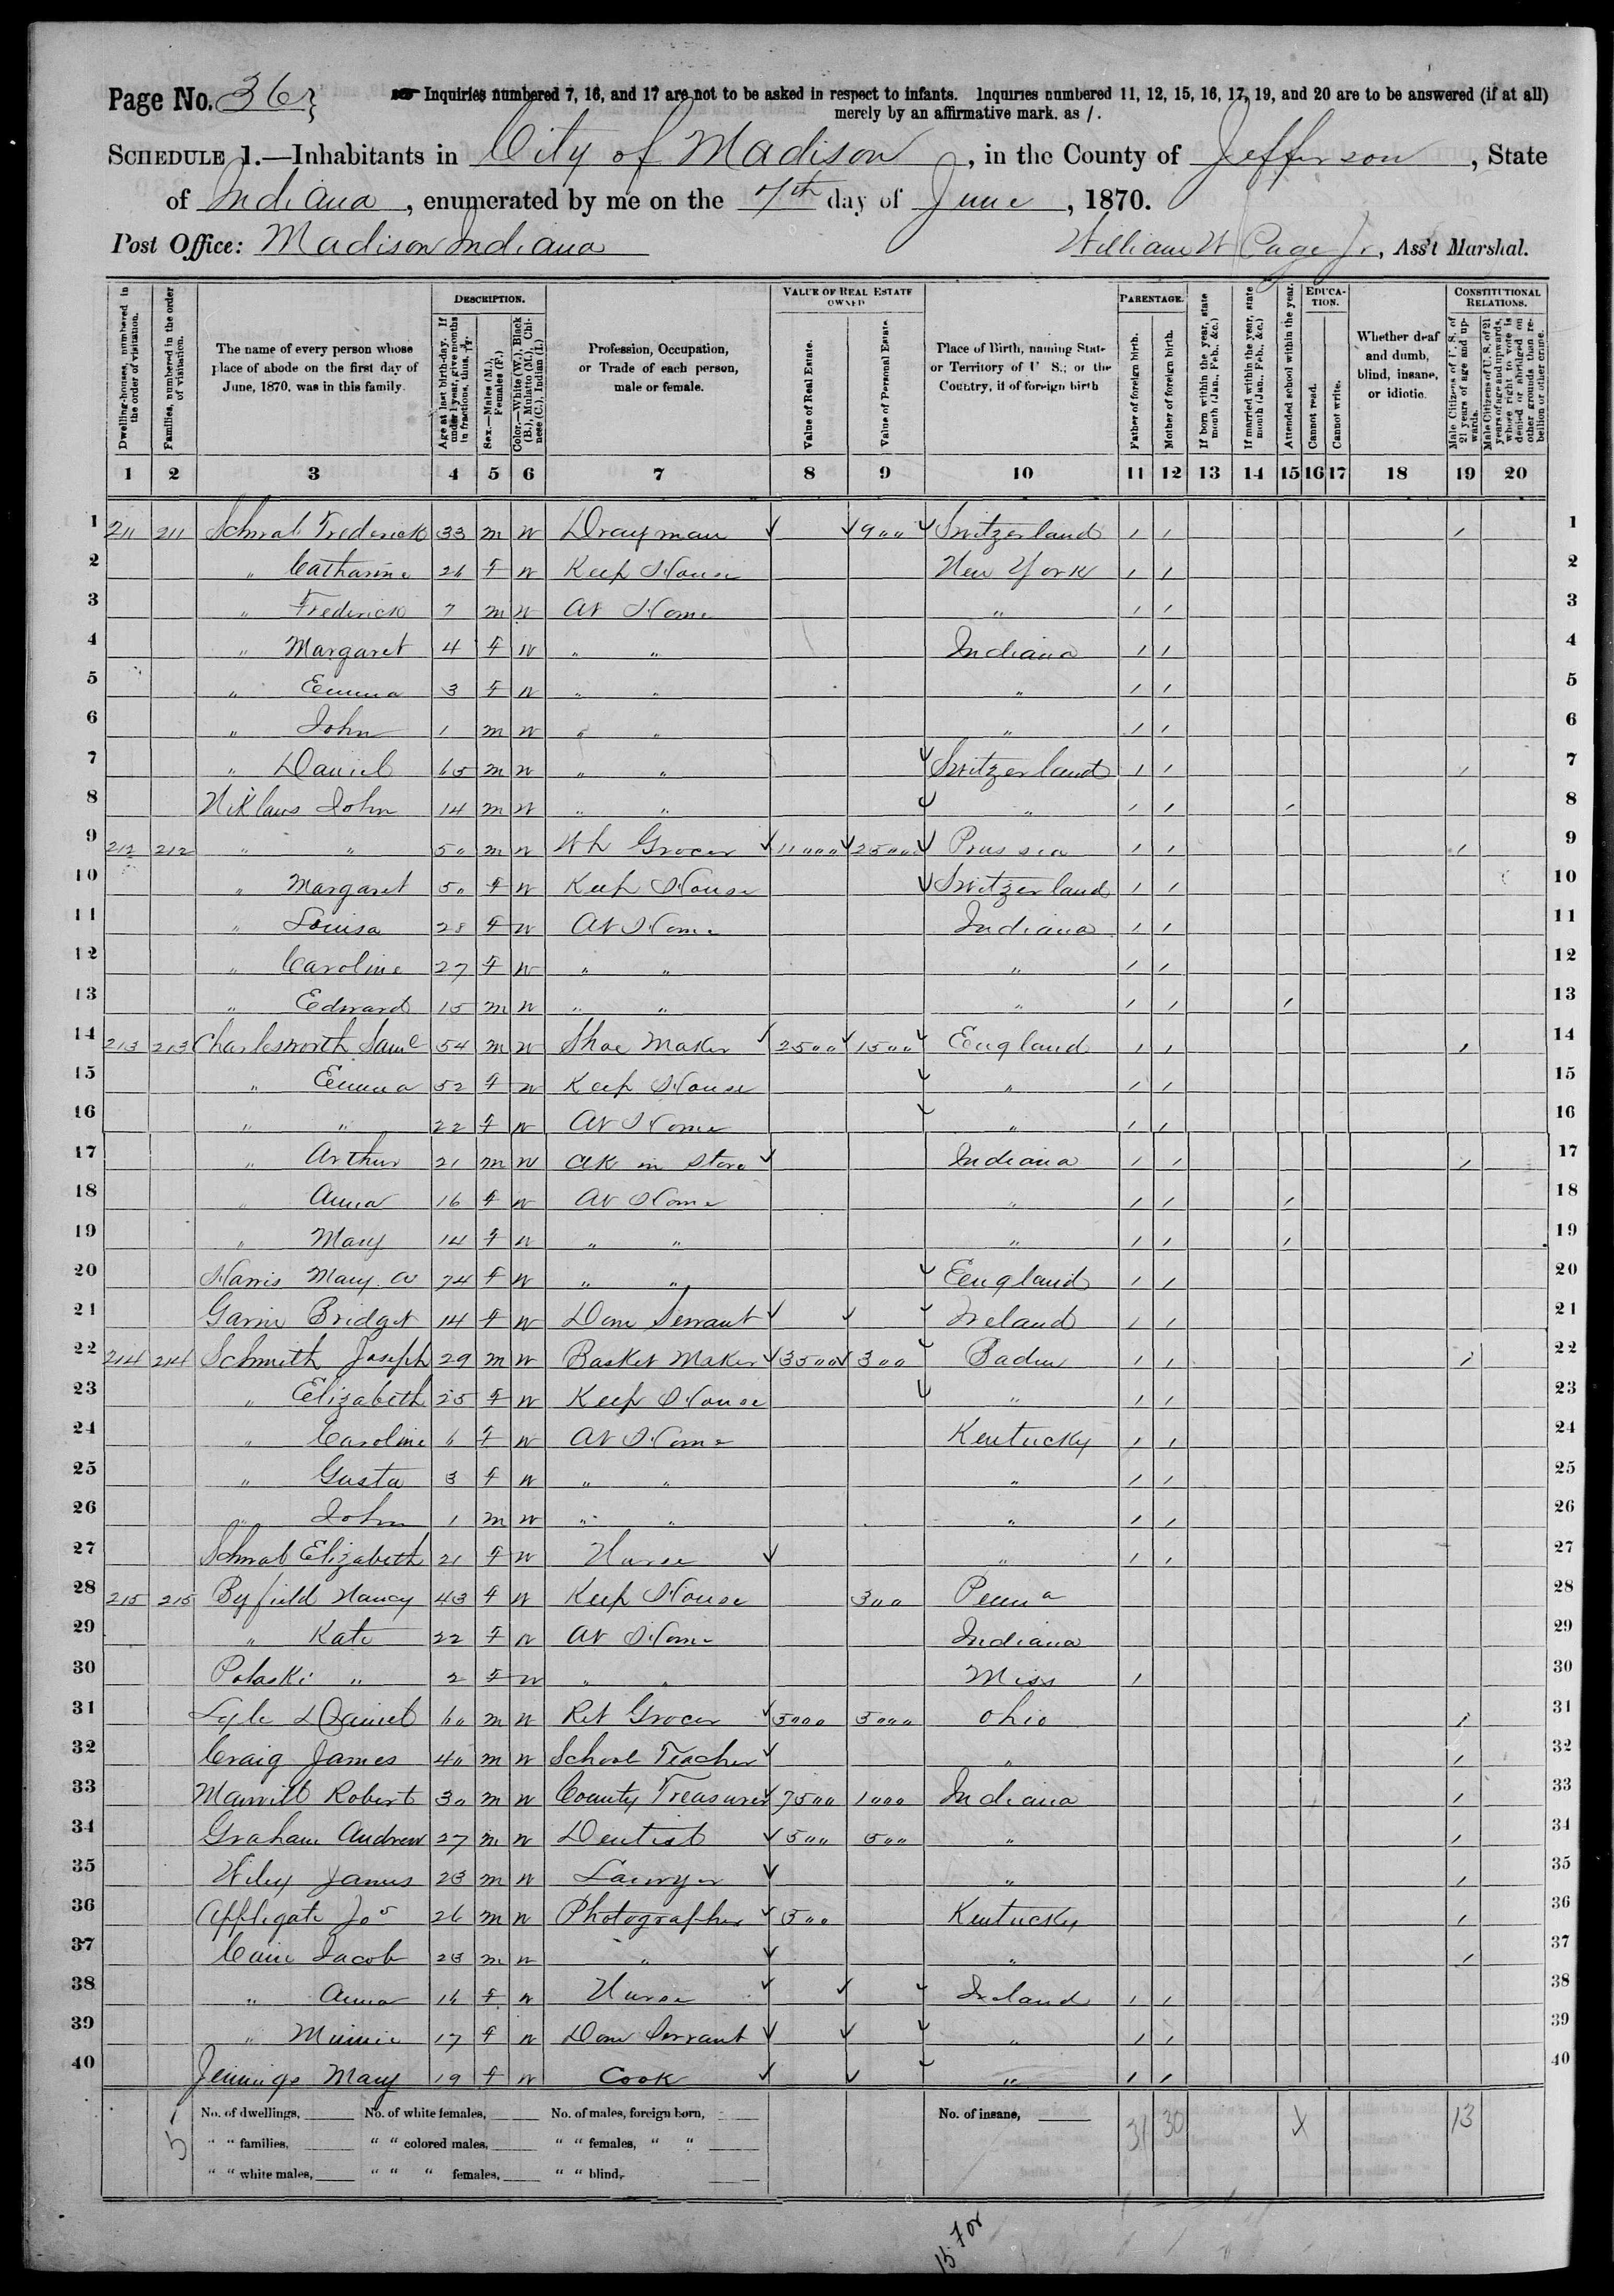 Page No. 36}
Inquiries numbered 7, 16, and 17 are not to be asked in respect to infants. Inquiries numbered 11, 12, 15, 16, 17, 19, and 20 are to be answered (if at all)
merely by an affirmative mark. as /.
SCHEDULE 1.—Inhabitants in City of Madison, in the County of Jefferson, State
of Indiana, enumerated by me on the 7th day of June, 1870.
Post Office: Madison Indiana William W Page Jr, Ass't Marshal.
Dwelling-houses, numbered in the order of visitation.
Families, numbered in the order of visitation.
The name of every person whose place of abode on the first day of June, 1870, was in this family.
DESCRIPTION.
Age at last birth-day. If under 1 year, give months in fractions, thus,
Sex.—Males (M.), Females (F.)
Color.—White (W.), Black (B.), Mulatto (M.), Chinese (C.), Indian (I.)
Profession, Occupation, or Trade of each person, male or female.
VALUE OF REAL ESTATE OWNED
Value of Real Estate.
Value of Personal Estate
Place of Birth, naming State or Territory of U S.; or the Country, if of foreign birth
PARENTAGE.
Father of foreign birth.
Mother of foreign birth.
If born within the year, state month (Jan., Feb., &c.)
If married within the year, state month (Jan., Feb., &c.)
Attended school within the year.
EDUCATION.
Cannot read.
Cannot write.
Whether deaf and dumb, blind, insane, or idiotic.
CONSTITUTIONAL RELATIONS.
Male Citizens of U. S. of 21 years of age and upwards.
Male Citizens of U. S. of 21 years of age and upwards, whose right to vote is denied or abridged on other grounds than rebellion or other crime.
1 2 3 4 5 6 7 8 9 10 11 12 13 14 15 16 17 18 19 20
1 211 211 Schwab Frederick 33 m W Drayman 900 Switzerland / / / 1
2 " Catharine 26 F W Keep House New York / / 2
3 " Frederick 7 m W At Home " / / 3
4 " Margaret 4 F W " " Indiana / / 4
5 " Emma 3 F W " " " / / 5
6 " John 1 m W " " " / / 6
7 " Daniel 65 m W " " Switzerland / / / 7
8 Niklaus John 14 m W " " " / / / 8
9 212 212 " " 50 m W Wh Grocer 11000 25000 Prussia / / / 9
10 " Margaret 50 F W Keep House Switzerland / / 10
11 " Louisa 28 F W At Home Indiana / / 11
12 " Caroline 27 F W " " " / / 12
13 " Edward 15 m W " " " / / / 13
14 213 213 Charlesworth Saml 54 m W Shoe Maker 2500 1500 England / / / 14
15 " Emma 52 F W Keep House " / / 15
16 " " 22 F W At Home " / / 16
17 " Arthur 21 m W Clk in Store Indiana / / / 17
18 " Anna 16 F W At Home " / / / 18
19 " Mary 14 F W " " " / / / 19
20 Harris Mary A 74 F W " " England / / 20
21 Bridget 14 F W Dom Servant Ireland / / 21
22 214 214 Schmith Joseph 29 m W Basket Maker 3500 300 Baden / / / 22
23 " Elizabeth 25 F W Keep House " / / 23
24 " Caroline 6 F W At Home Kentucky / / 24
25 " Gusta 3 F W " " " / / 25
26 " John 1 m W " " " / / 26
27 Schwab Elizabeth 21 F W Nurse " / / 27
28 215 215 Byfield Nancy 43 F W Keep House 300 Penna 28
29 " Kate 22 F W At Home Indiana 29
30 Polaski " 2 F W " " Miss / 30
31 Lyle Daniel 60 m W Ret Grocer 5000 5000 Ohio / 31
32 Craig James 40 m W School Teacher " / 32
33 Robert 30 m W County Treasurer 7500 1000 Indiana / 33
34 Graham Andrew 27 m W Dentist 500 500 " / 34
35 Wiley James 23 m W Lawyer " / 35
36 Applegate Jos 26 m W Photographer 500 Kentucky / 36
37 Cain Jacob 23 m W " " / 37
38 " Anna 16 F W Nurse Ireland / / 38
39 " Minnie 17 F W Dom Servant " / / 39
40 Jennings Mary 19 F W Cook " / / 40
No. of dwellings, No. of white females, No. of males, foreign born, No. of insane,
" " families, " " colored males, " " females, " "
" " white males, " " " females, " " blind,
5 31 30 X 13
15 For